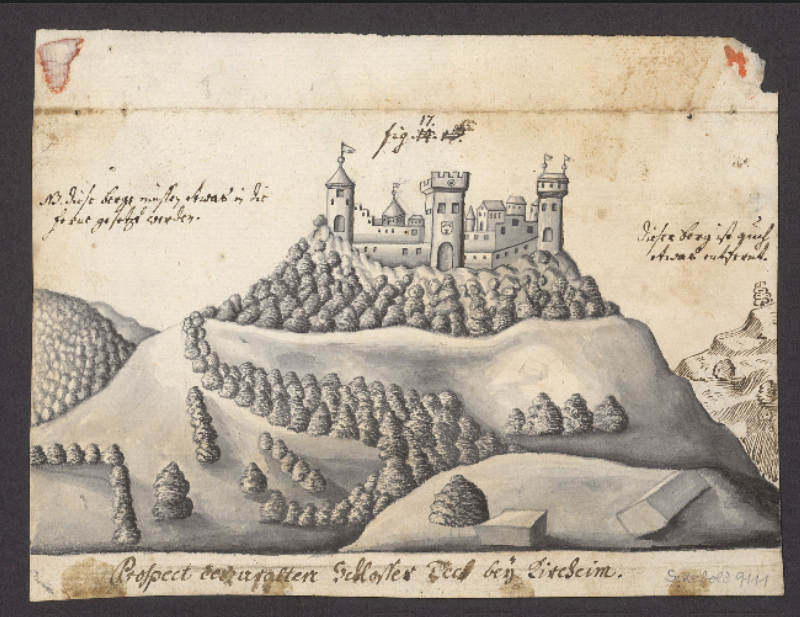 17.
fig.
NB. diese berge müssen etwas in die
ferne gesetzt werden.
dieser berg ist auch
etwas entfernt.
Prospect des uralten Schlosses Teck bey Kircheim.
Schefold 9111